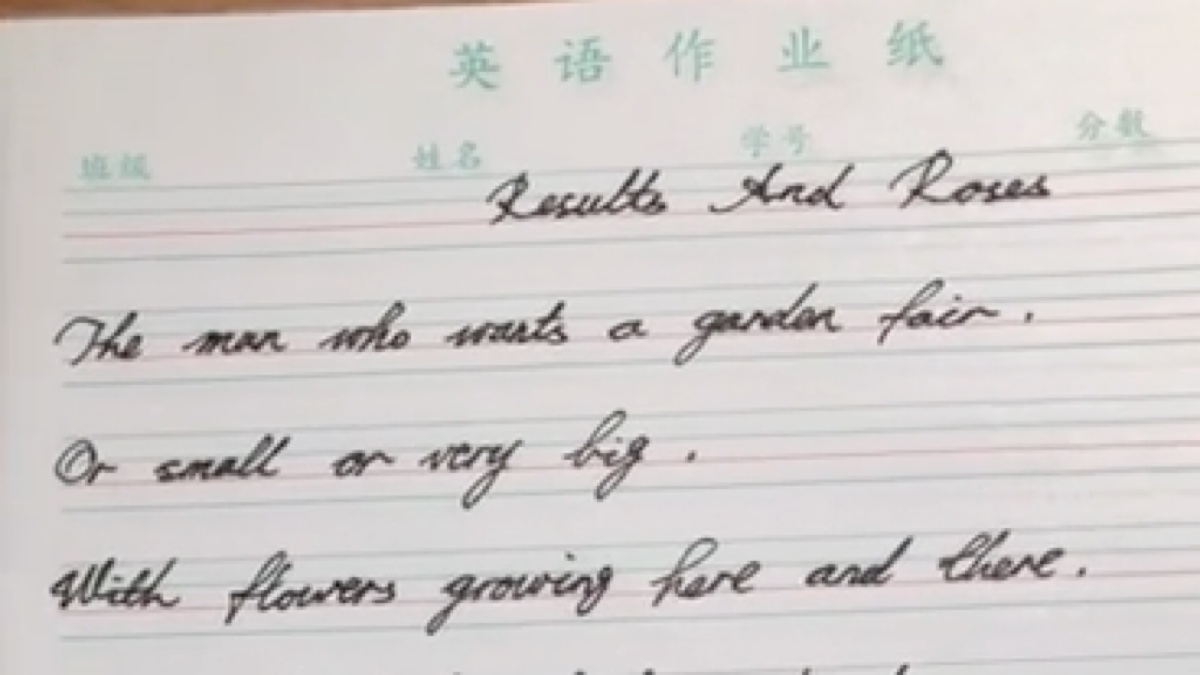 英语作业纸
班级 姓名 学号 分数
Results And Roses
The man who wants a garden fair.
Or small or very big.
With flowers growing here and there.